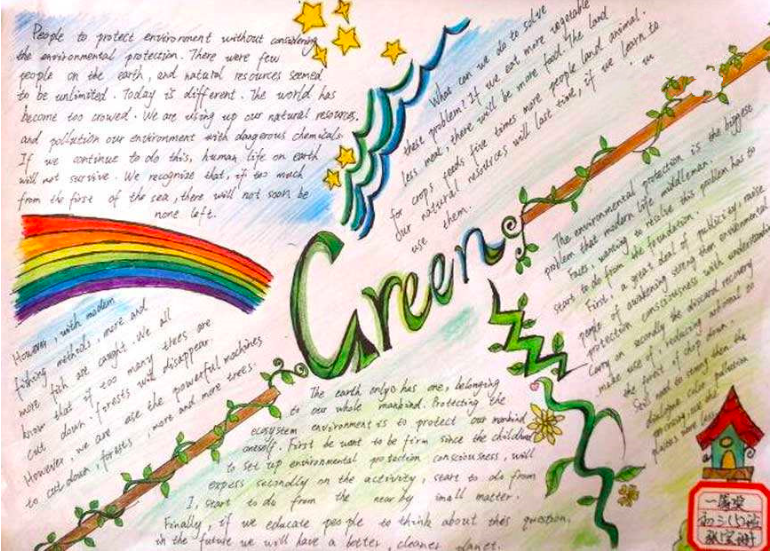 People to protect environment without considering
the environmental protection. There were few
people on the earth, and natural resources seemed
to be unlimited. Today is different. The world has
become too crowed. We are using up our natural resources,
and pollution our environment with dangerous chemicals.
If we continue to do this, human life on earth
will not survive. We recognize that, if too much
from the first of the sea, there will not soon be
none left.
What can we do to solve
these problem? If we eat more vegetable
less meat, there will be more food. The land
for crops feeds five times more people land animal.
Our natural resources will last time, if we learn to
use them.
Green
The environmental protection is the biggest
problem that modern life middleman.
Faces, wanting to resolve this problem has to
start to do from the foundation.
First, a great deal of publicity, raise
people of awakening strong then environmental
protection consciousness with understanding
Carry on secondly the discard recovery
make use of, reducing
the forest of chop down.
Still need to strong then the
pollution
However, with modem
fishing methods, more and
more fish are caught. We all
know that if too many trees are
cut down. forests will disappear.
However, we are use the powerful machines
to cut down, forests, more and more trees.
The earth only has one, belonging
to our whole mankind. Protecting the
ecosystem environment is to protect our mankind
oneself. First be want to be firm since the childhood
to set up environmental protection consciousness, will
expess secondly on the activity, start to do from
I, start to do from the near by small matter.
Finally, if we educate people to think about this question.
in the future we will have a better, cleaner planet.
一等奖
初三(5)班